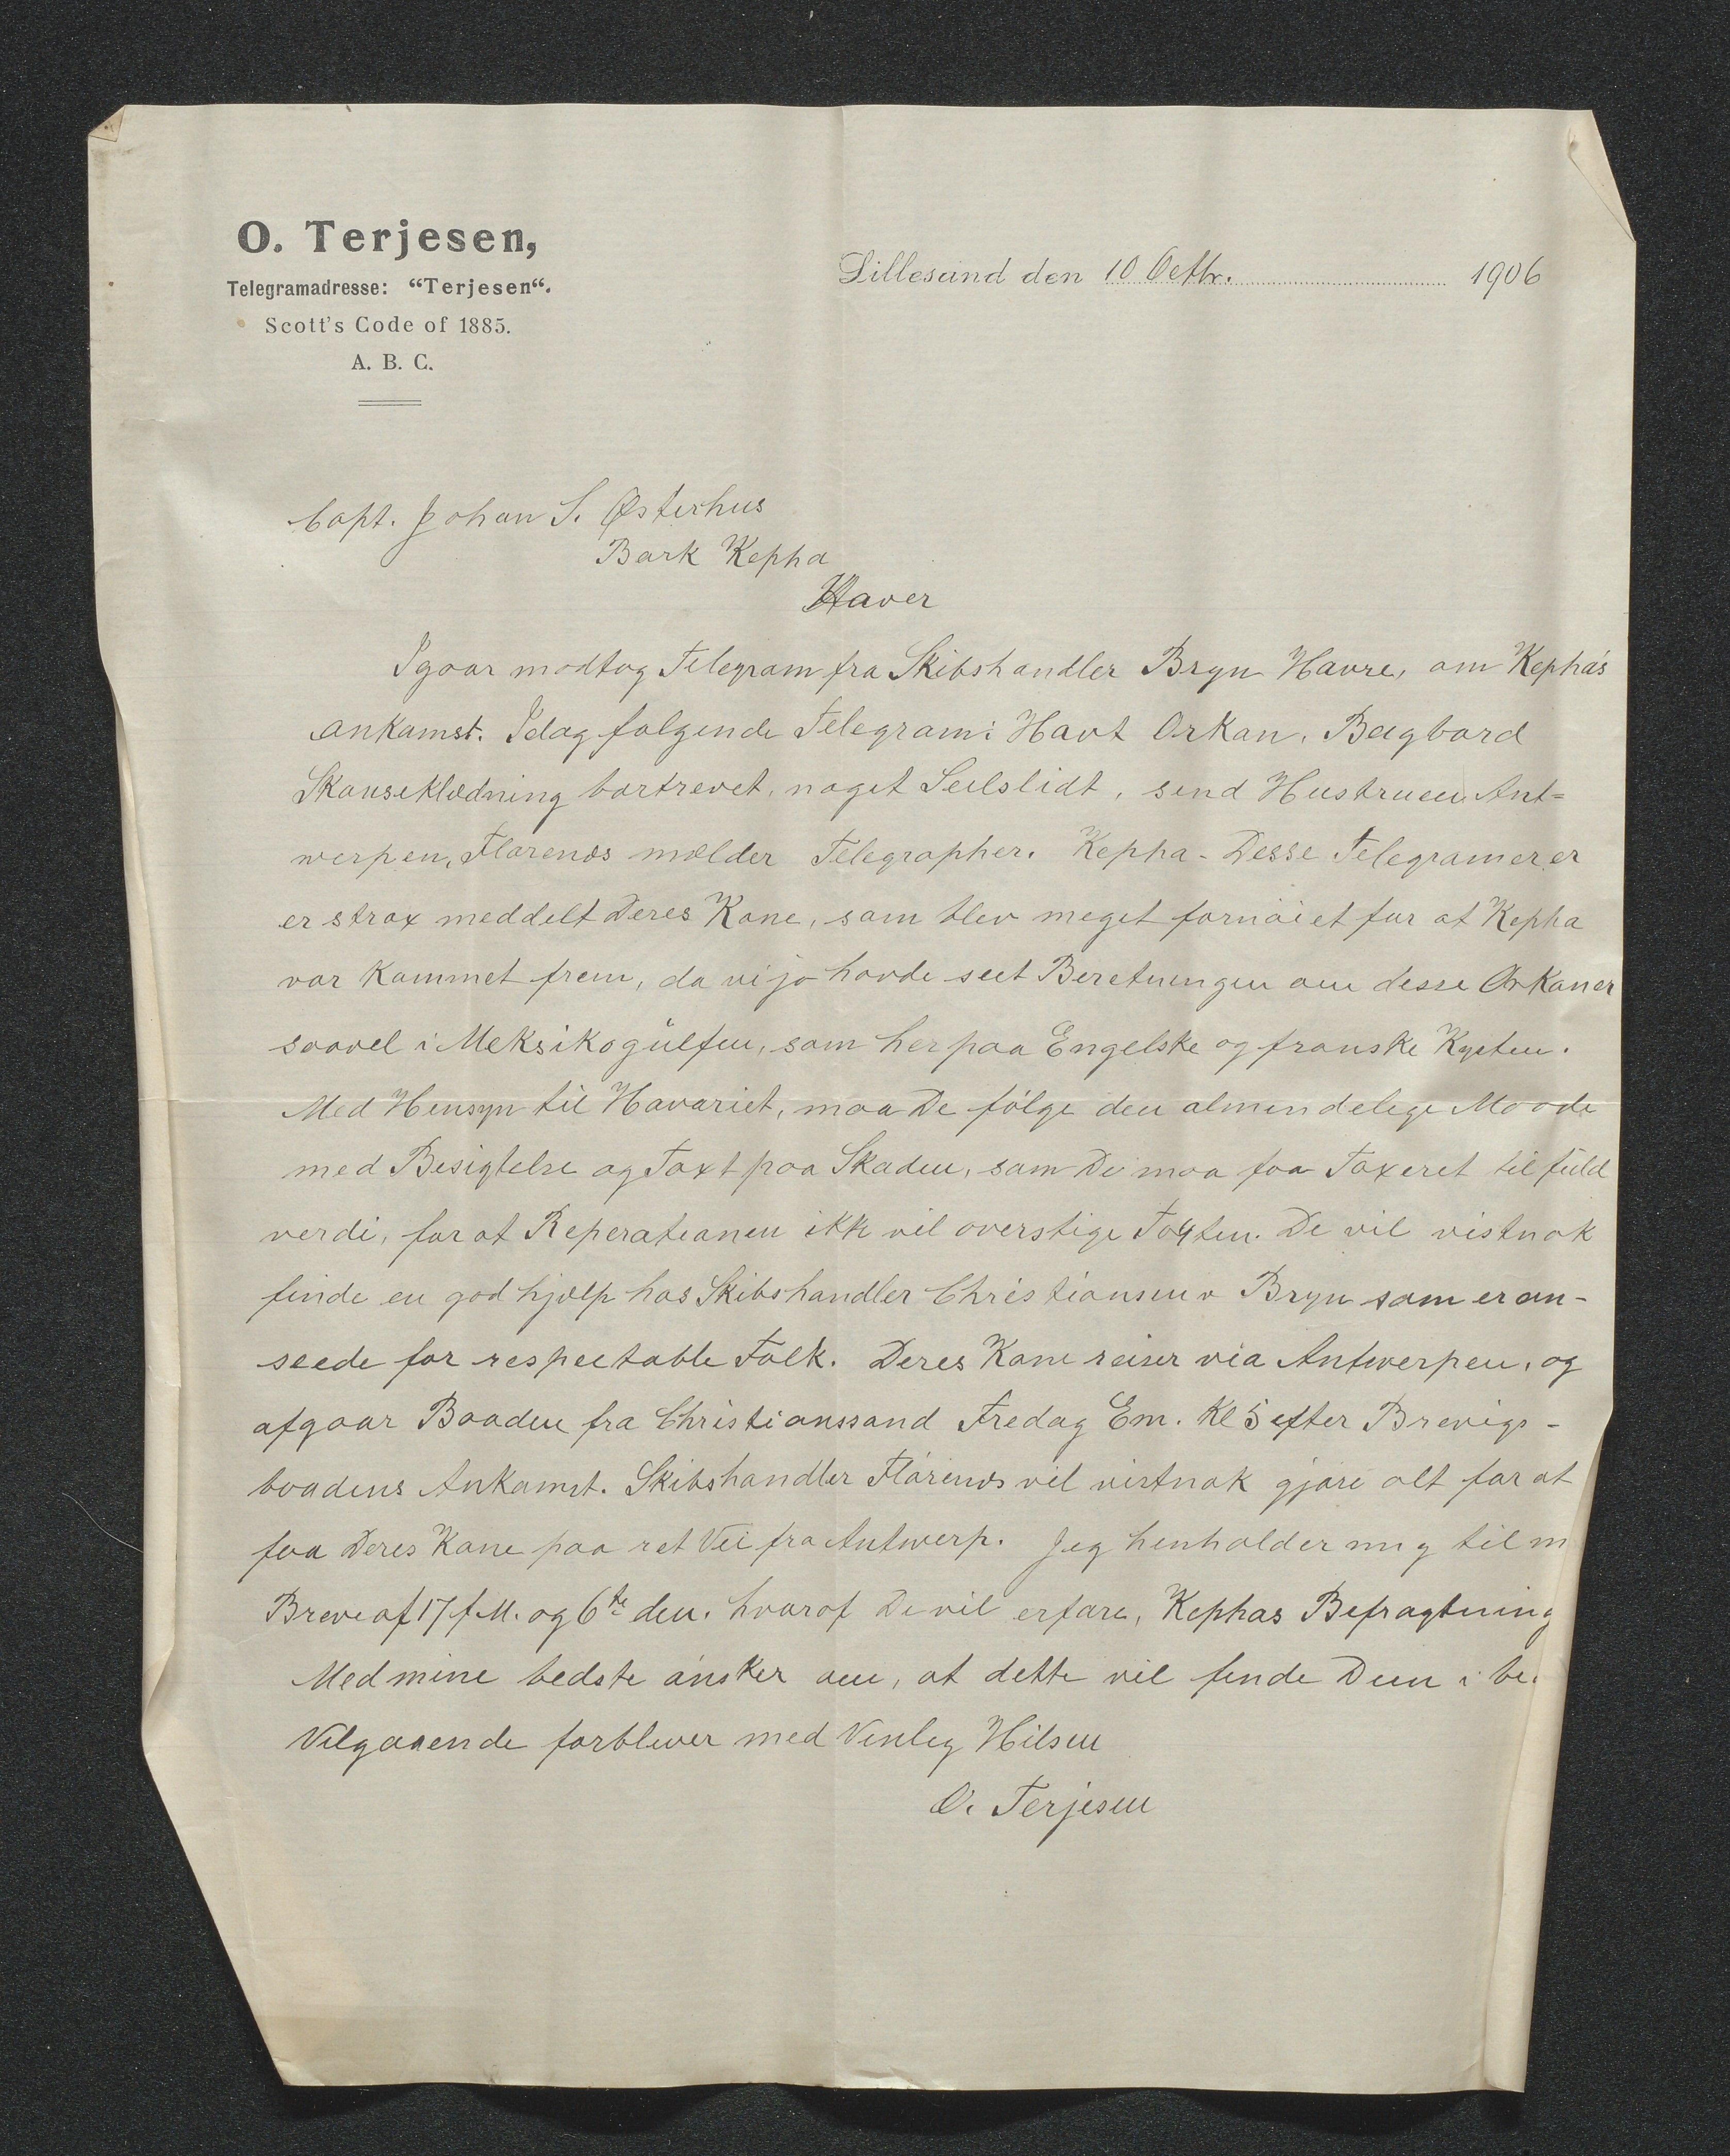 O. Terjesen,
Telegramadresse: “Terjesen“.
Scott's Code of 1885.
A. B. C.
Lillesand den 10 Octbr. 1906
Capt. Johan S. Østerhus
Bark Kepha
Haver
Igaar modtog Telegram fra Skibshandler Bryn Havre, om Kepha's
ankomst. Idag følgende Telegram: Havt Orkan, Bagbord
Skanseklædning bortrevet, noget Seilslidt, send Hustruen Ant=
werpen, Florends mælder Telegrapher. Kepha - Desse Telegramer er
er strax meddelt Deres Kone, som blev meget fornöiet for at Kepha
var kommet frem, da vi jo havde seet Beretningen om desse Orkaner
saavel i Meksikogülfen, som her paa Engelske og franske Kysten.
Med Hensyn til Havariet, maa De fölge den almendelege Maade
med Besigtelse og Taxt paa Skaden, som De maa faa Taxeret til füld
verdi, for at Reperationen ikke vil overstige Taxten. De vil vistnok
finde en god hjælp hos Skibshandler Christiansen & Bryn som er an-
seede for respectable Folk. Deres Kone reiser via Antwerpen, og
afgaar Baaden fra Christianssand Fredag Em. Kl 5 efter Brevigs-
baadens Ankomst. Skibshandler Florends vil vistnok gjøre alt for at
faa Deres Kone paa ret Vei fra Antwerp. Jeg henholder mig til m
Breve af 17 f.M. og 6te den. hvoraf De vil erfare, Kephas Befragtning
Med mine bedste ønsker om, at dette vil finde Dem i be.
Velgaaende forbliver med Venleg Hilsen
O. Terjesen